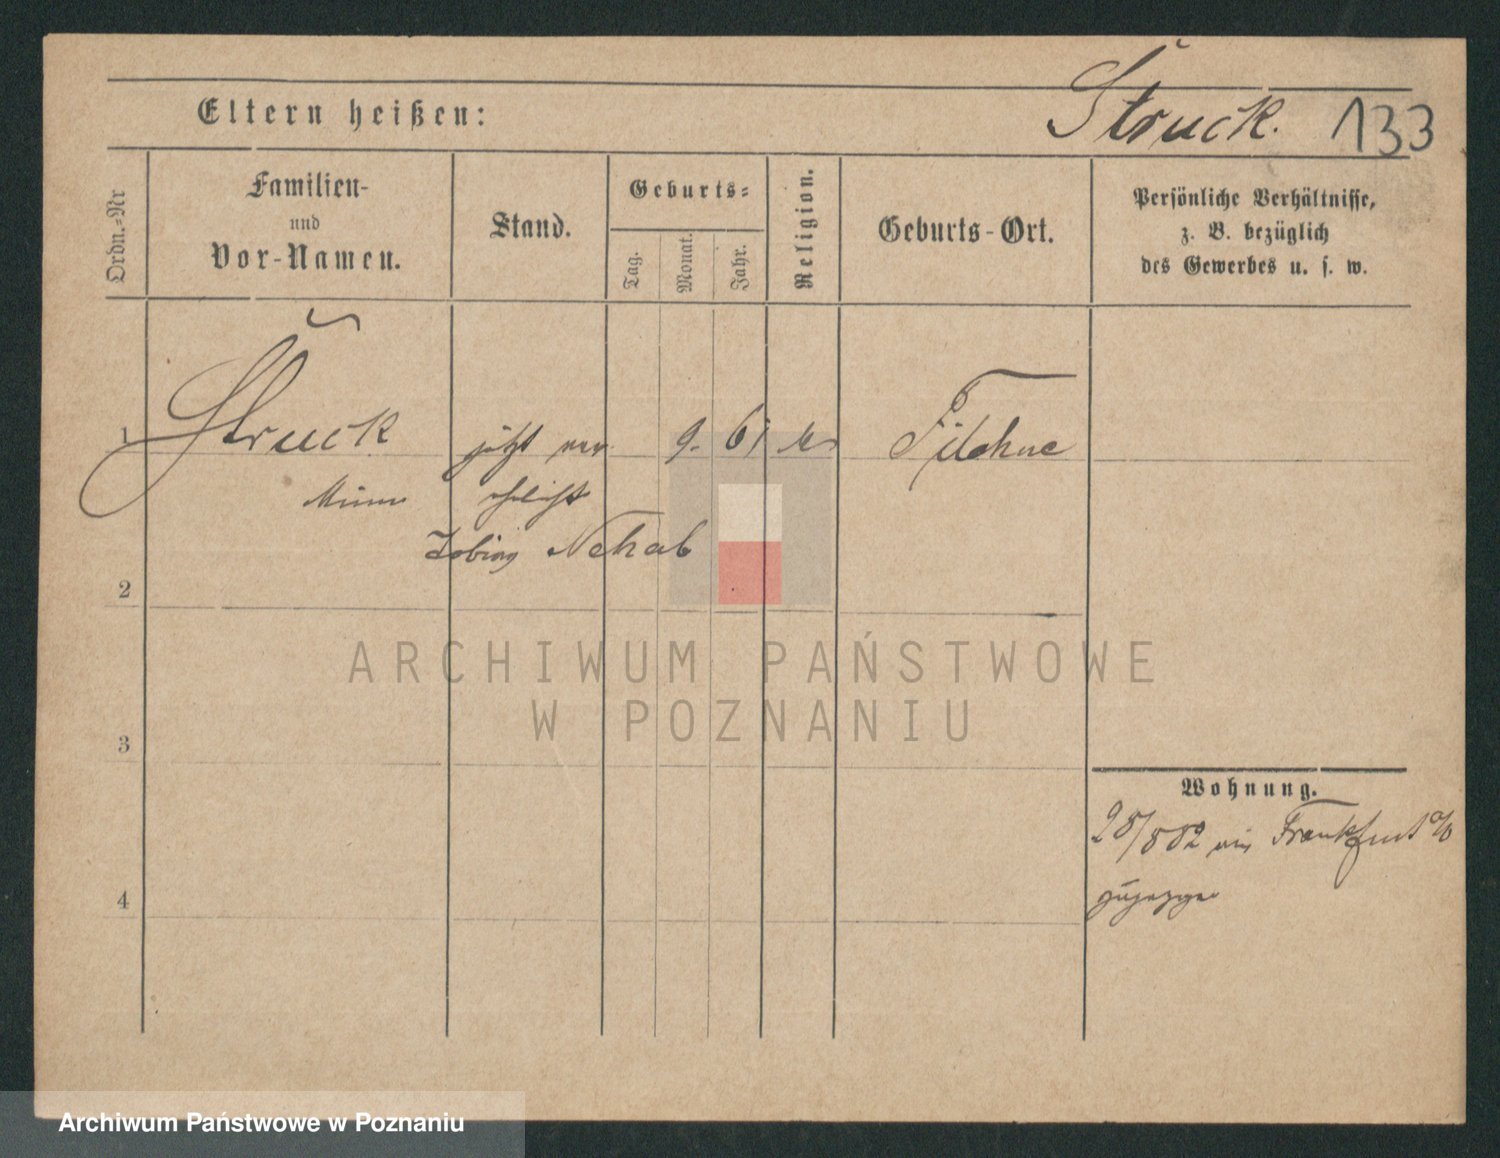 Eltern heißen:
Struck. 133
Ordn.-Nr
Familien-
und
Vor-Namen.
Stand.
Geburts-
Tag.
Monat.
Jahr.
Religion.
Geburts-Ort.
Persönliche Verhältnisse,
z. B. bezüglich
des Gewerbes u. s. w.
1
Struck jetzt ver 9. 61 Filehne
ehlicht
Nehab
2
ARCHIWUM PAŃSTWOWE
W POZNANIU
3
Wohnung.
28/8 82 Frankfurt a/O
zugezogen
4
Archiwum Państwowe w Poznaniu